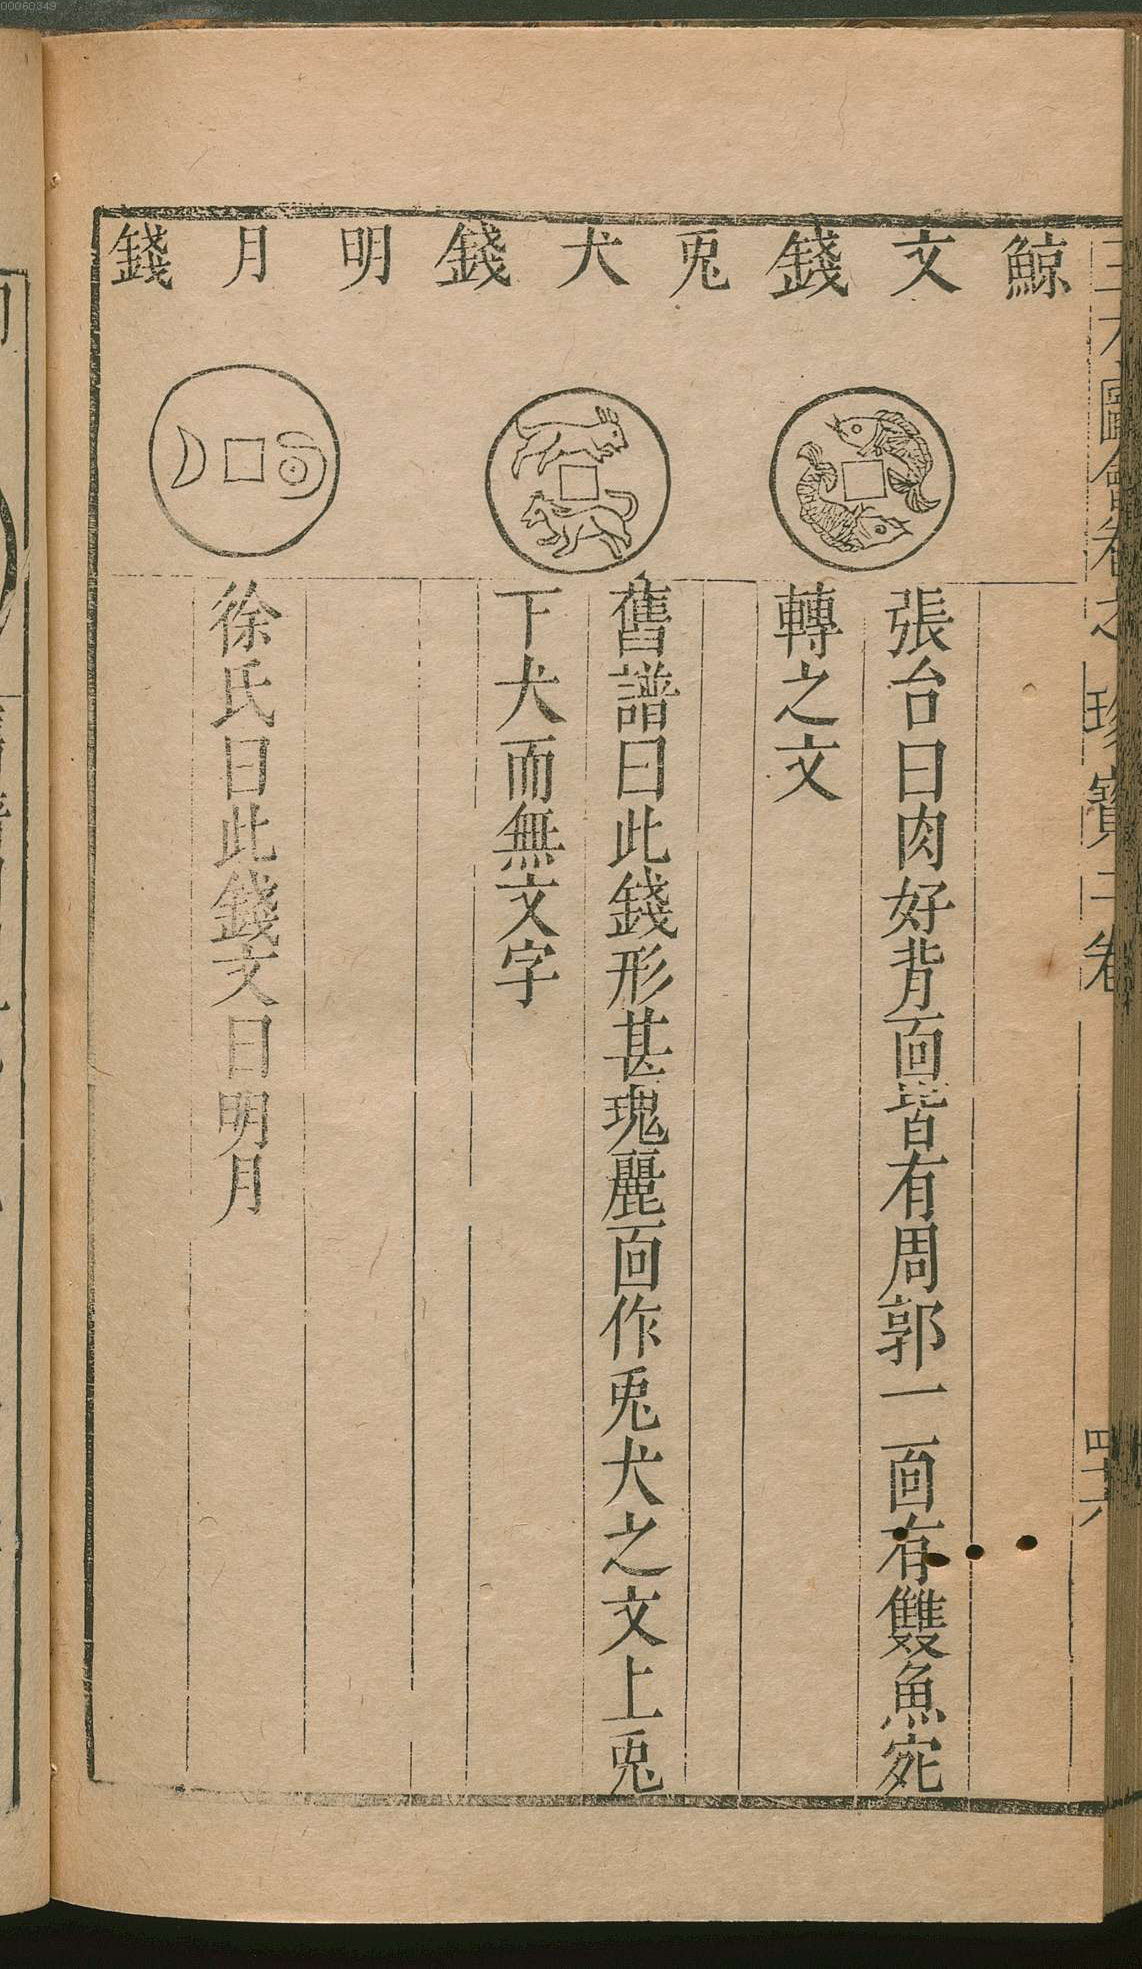 鯨文錢
張台曰肉好背面皆有周郭一面有雙魚宛
轉之文
兎犬錢
舊譜曰此錢形甚瑰麗面作兎犬之文上兎
下犬而無文字
明月錢
徐氏曰此錢文曰明月
珍寶二卷
四十六
00060349